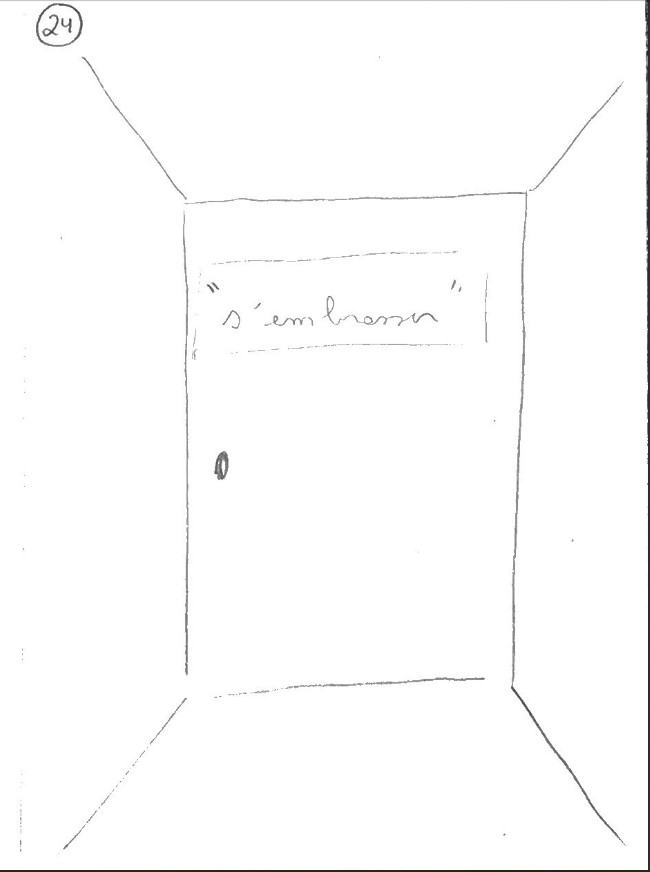 24
"s'embrasser"